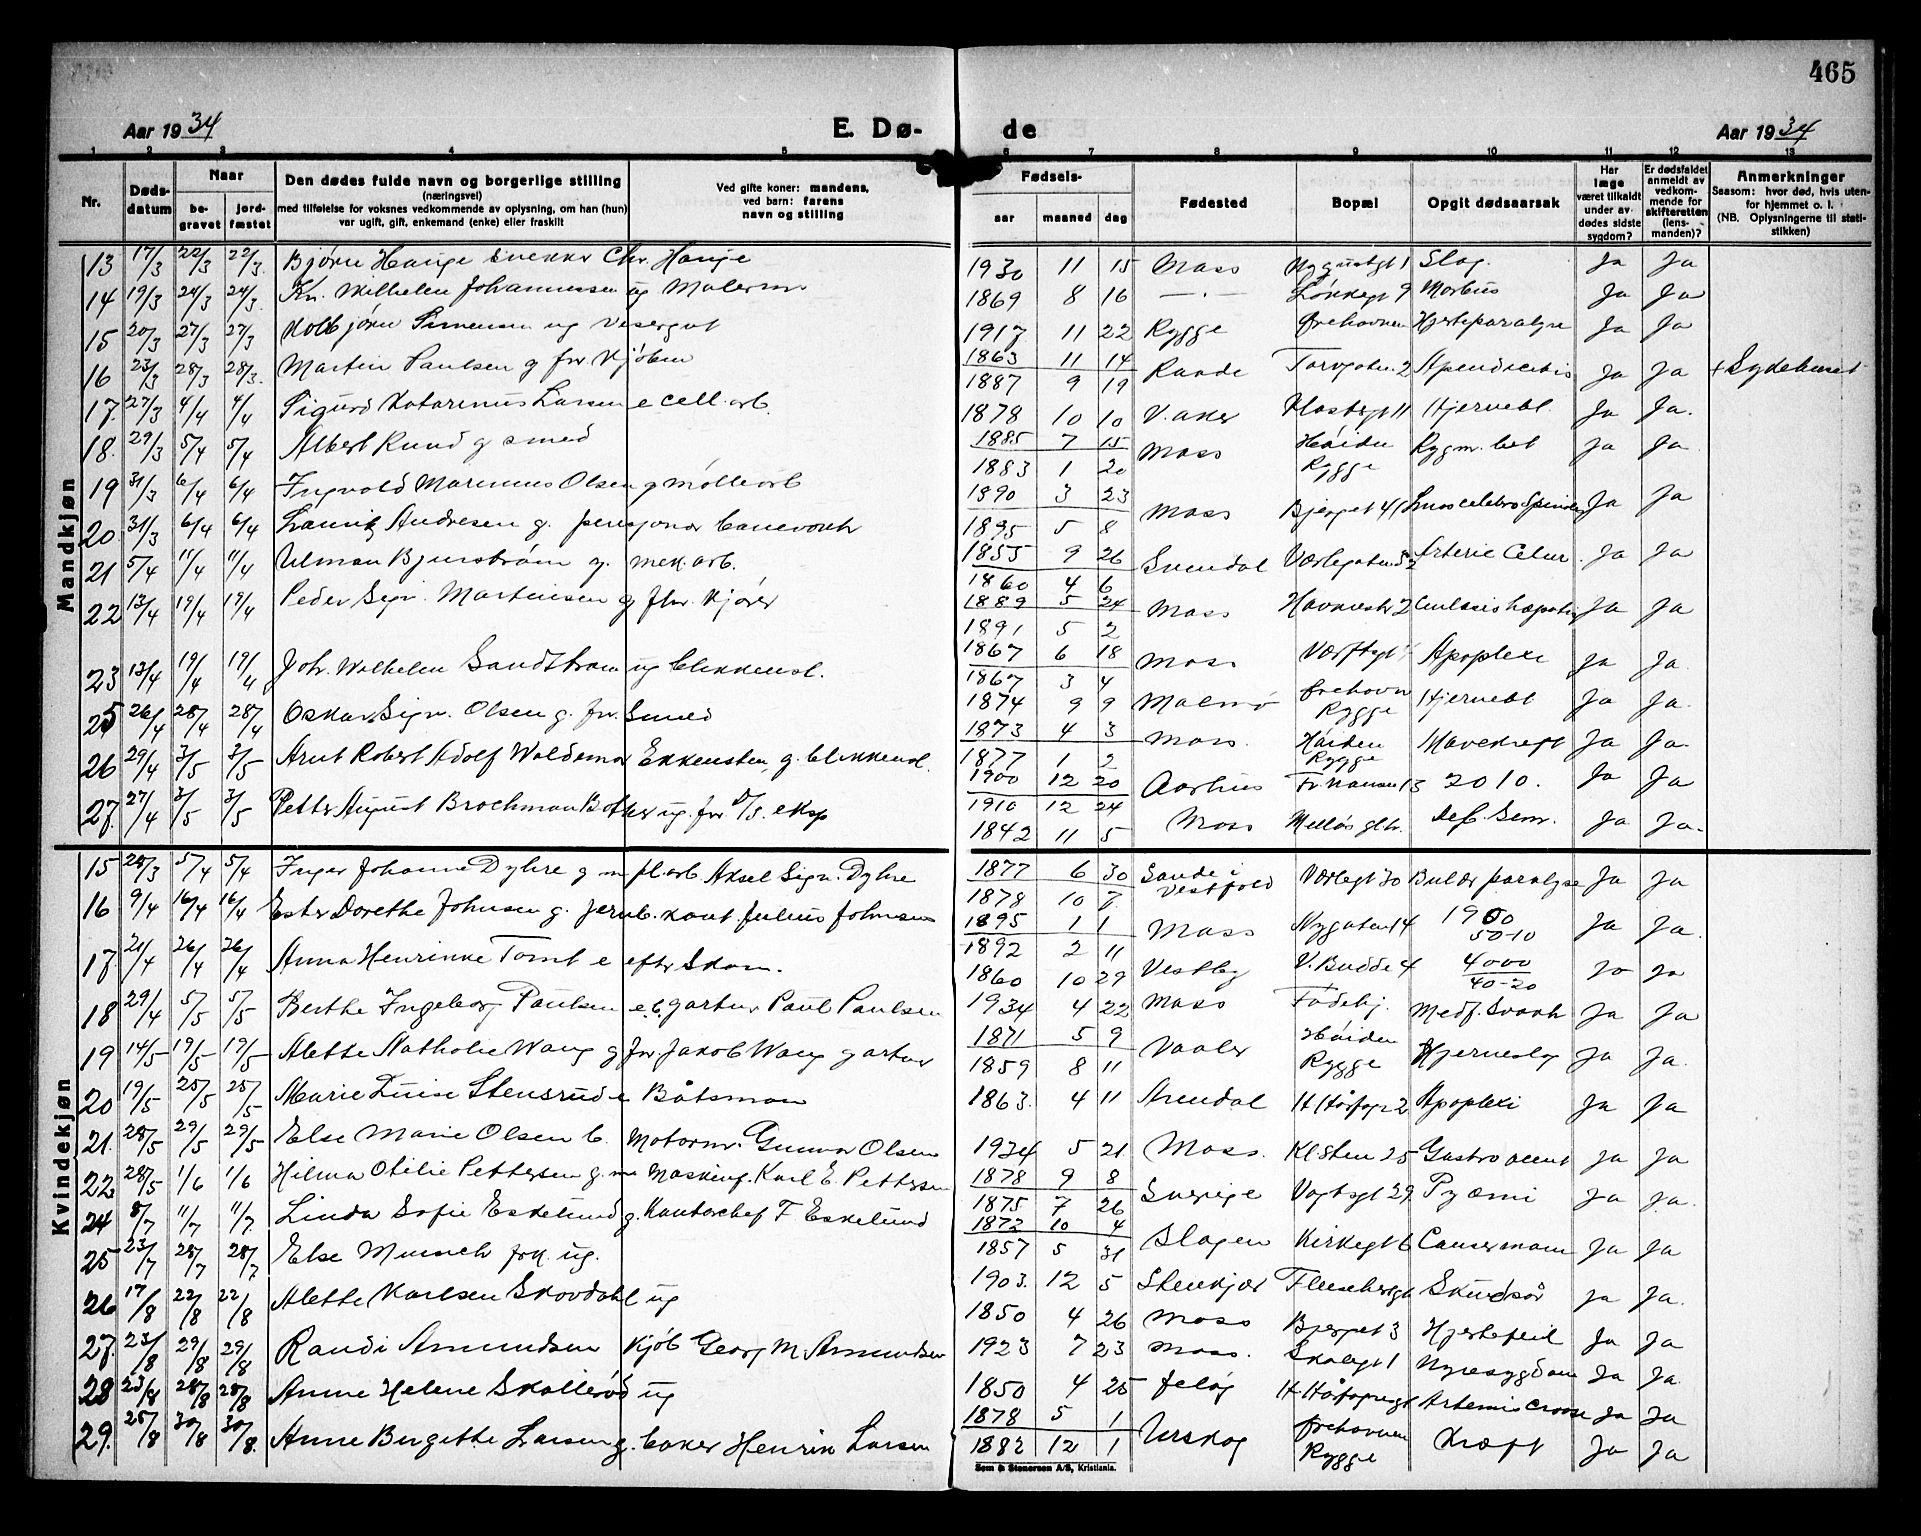 465
Aar 1934 E. Dø- de Aar 1934
1 2 3 4 5 6 7 8 9 10 11 12 13
Nr. Døds-datum Naar be-gravet jord-fæstet Den dødes fulde navn og borgerlige stilling (næringsvei) med tilføielse for voksnes vedkommende av oplysning, om han (hun) var ugift, gift, enkemand (enke) eller fraskilt Ved gifte koner: mandens, ved barn: farens navn og stilling Fødsels- aar maaned dag Fødested Bopæl Opgit dødsaarsak Har læge været tilkaldt under av-dødes sidste sygdom? Er dødsfaldet anmeldt av vedkom-mende for skifteretten (lens-manden)? Anmerkninger Saasom: hvor død, hvis uten-for hjemmet o. l. (NB. Oplysningerne til stati-stikken)
Mandkjøn
13 17/3 22/3 22/3 Bjørn Hauge snekker Chr. Hauge 1930 11 15 Moss Slag. Ja Ja
14 19/3 24/3 24/3 Kr. Wilhelm Johannessen ug Malerm 1869 8 16 — . — Løkkegt 9 Morbus Ja Ja
15 20/3 27/3 27/3 Kolbjørn Simensen ug Visergut 1917 11 22 Rygge Ørehavnen Hjerteparalyse Ja Ja
16 23/3 28/3 28/3. Martin Paulsen g frv Kjøbm 1863 11 14 1887 9 19 Raade Torvgaten 2 Apendicitis Ja Ja + Sykehuset
17. 27/3 4/4 4/4 Sigurd Katarinus Larsen e cell. arb. 1878 10 10 V. aker 11 Hjernebl. Ja Ja.
18. 29/3 5/4 5/4 Albert Rund g smed 1885 7 15 1883 1 20 Moss Høiden Rygge Rygm. bet Ja Ja
19 31/3 6/4 6/4 Ingvald Marinus Olsen g mølle arb 1890 3 23 1895 5 8 Moss Ja Ja
20. 31/3 6/4 6/4 Andresen g. 1855 9 26 1860 4 6 Ja Ja
21 5/4 11/4 11/4 Ulman Bjurstrøm g. mek. arb. 1889 5 24 1891 5 2 Moss Ja Ja
22 13/4 19/4 19/4 Peder Sigv. Martinsen g fhv. Kjører 1867 6 18 1867 3 4 Moss Apoplexi Ja Ja.
23 13/4 19/4 19/4 Joh. Wilhelm Sandstrøm ug blikkensl. 1874 9 9 1873 4 3 Malmø Ørehavn Rygge Hjernebl Ja Ja.
25 26/4 28/4 28/4 Oskar Sigv. Olsen g. frv. Smed 1877 1 2 Moss. Høiden Rygge Mavekreft Ja Ja.
26 29/4 3/5 3/5 Arnt Robert Adolf Waldemar Ekkensten g. blikkensl. 1900 12 20 1910 12 24 Aarhus Fr. Nansen 13 2010. Ja Ja
27. 27/4 3/5 3/5 Petter August Brochman ug. frv D/S. eksp 1842 11 5 Moss Ja Ja.
Kvindekjøn
15 28/3 5/4 5/4 Inger Johanne Dyhre g m fl. arb Aksel Sigv. Dyhre 1877 6 30 1878 10 7. Sande i Vestfold Værlegt 30 Bulær paralyse Ja Ja
16 9/4 16/4 16/4 Ester Dorethe Johnsen g. jernb. kont. Julius Johnsen 1895 1 1 1892 2 11 Moss Nygaten 14 1950 50-10 Ja Ja.
17. 21/4 26/4 26/4 Anna Henrikke Tomt e efter Skom. 1860 10 29 Vestby V. Budde 4 4000 40-20 Jo Ja
18 29/4 5/5 5/5 Berthe Ingeborg Paulsen e. b. gartner Paul Paulsen 1934 4 22 Moss Fødehj. Medf. Svakh Ja Ja
19 14/5 19/5 19/5 Alette Nathalie Wang g frv Jakob Wang gartner 1871 5 9 1859 8 11 Vaaler Høiden Rygge Hjerneslag Ja Ja.
20 19/5 25/5 25/5 Marie Luise Stensrud e Båtsman 1863. 4 11 Arendal Apoplexi Ja Ja
21. 28/5 29/5 29/5 Else Marie Olsen b. Motormr. Gunnar Olsen 1934 5 21 Moss. Kl. Sten 25 Ja Ja
22 28/5 1/6 1/6 Hilma Otilie Pettersen g. m Maskinf. Karl E. Pettersen 1878 9 8 1875 7 26 Sverige Vogtsgt 29. Pyæmi Ja Ja.
24 8/7 11/7 11/7 Linda Sofie Eskelund g. Kontorchef F Eskelund 1872 10 4 1857 5 31 Slagen Kirkegt 6 Ja Ja
25 23/7 28/7 28/7 Else Munch frk. ug. 1903. 12 5 Stenkjær Ja Ja.
26 17/8 22/8 22/8 Alette Karlsen Skovdahl ug 1850 4 26 Moss 3 Hjertefeil Ja Ja
27. 23/8 29/8 29/8 Randi Amundsen Kjøb Georg M. Amundsen 1923 7 23 Moss. Skolegt 1 Nyresygdom Ja Ja
28 23/8 28/8 28/8 Anne Helene Skallerød ug 1850 4 25 Jeløy Ja Ja
29. 25/8 30/8 30/8. Anne Bergitte Larsen g. baker Henrik Larsen 1878 5 1 1882 12 1 Urskog Ørehavnen Rygge Kræft Ja Ja
Sem & Stenersen A/S, Kristiania.